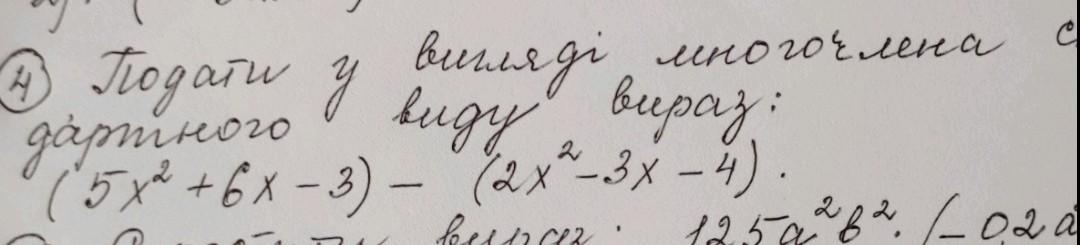 ④ Подати у вигляді многочлена с
дартного виду вираз:
(5x² + 6x - 3) - (2x² - 3x - 4).
вираз: 125a²b². (-02a